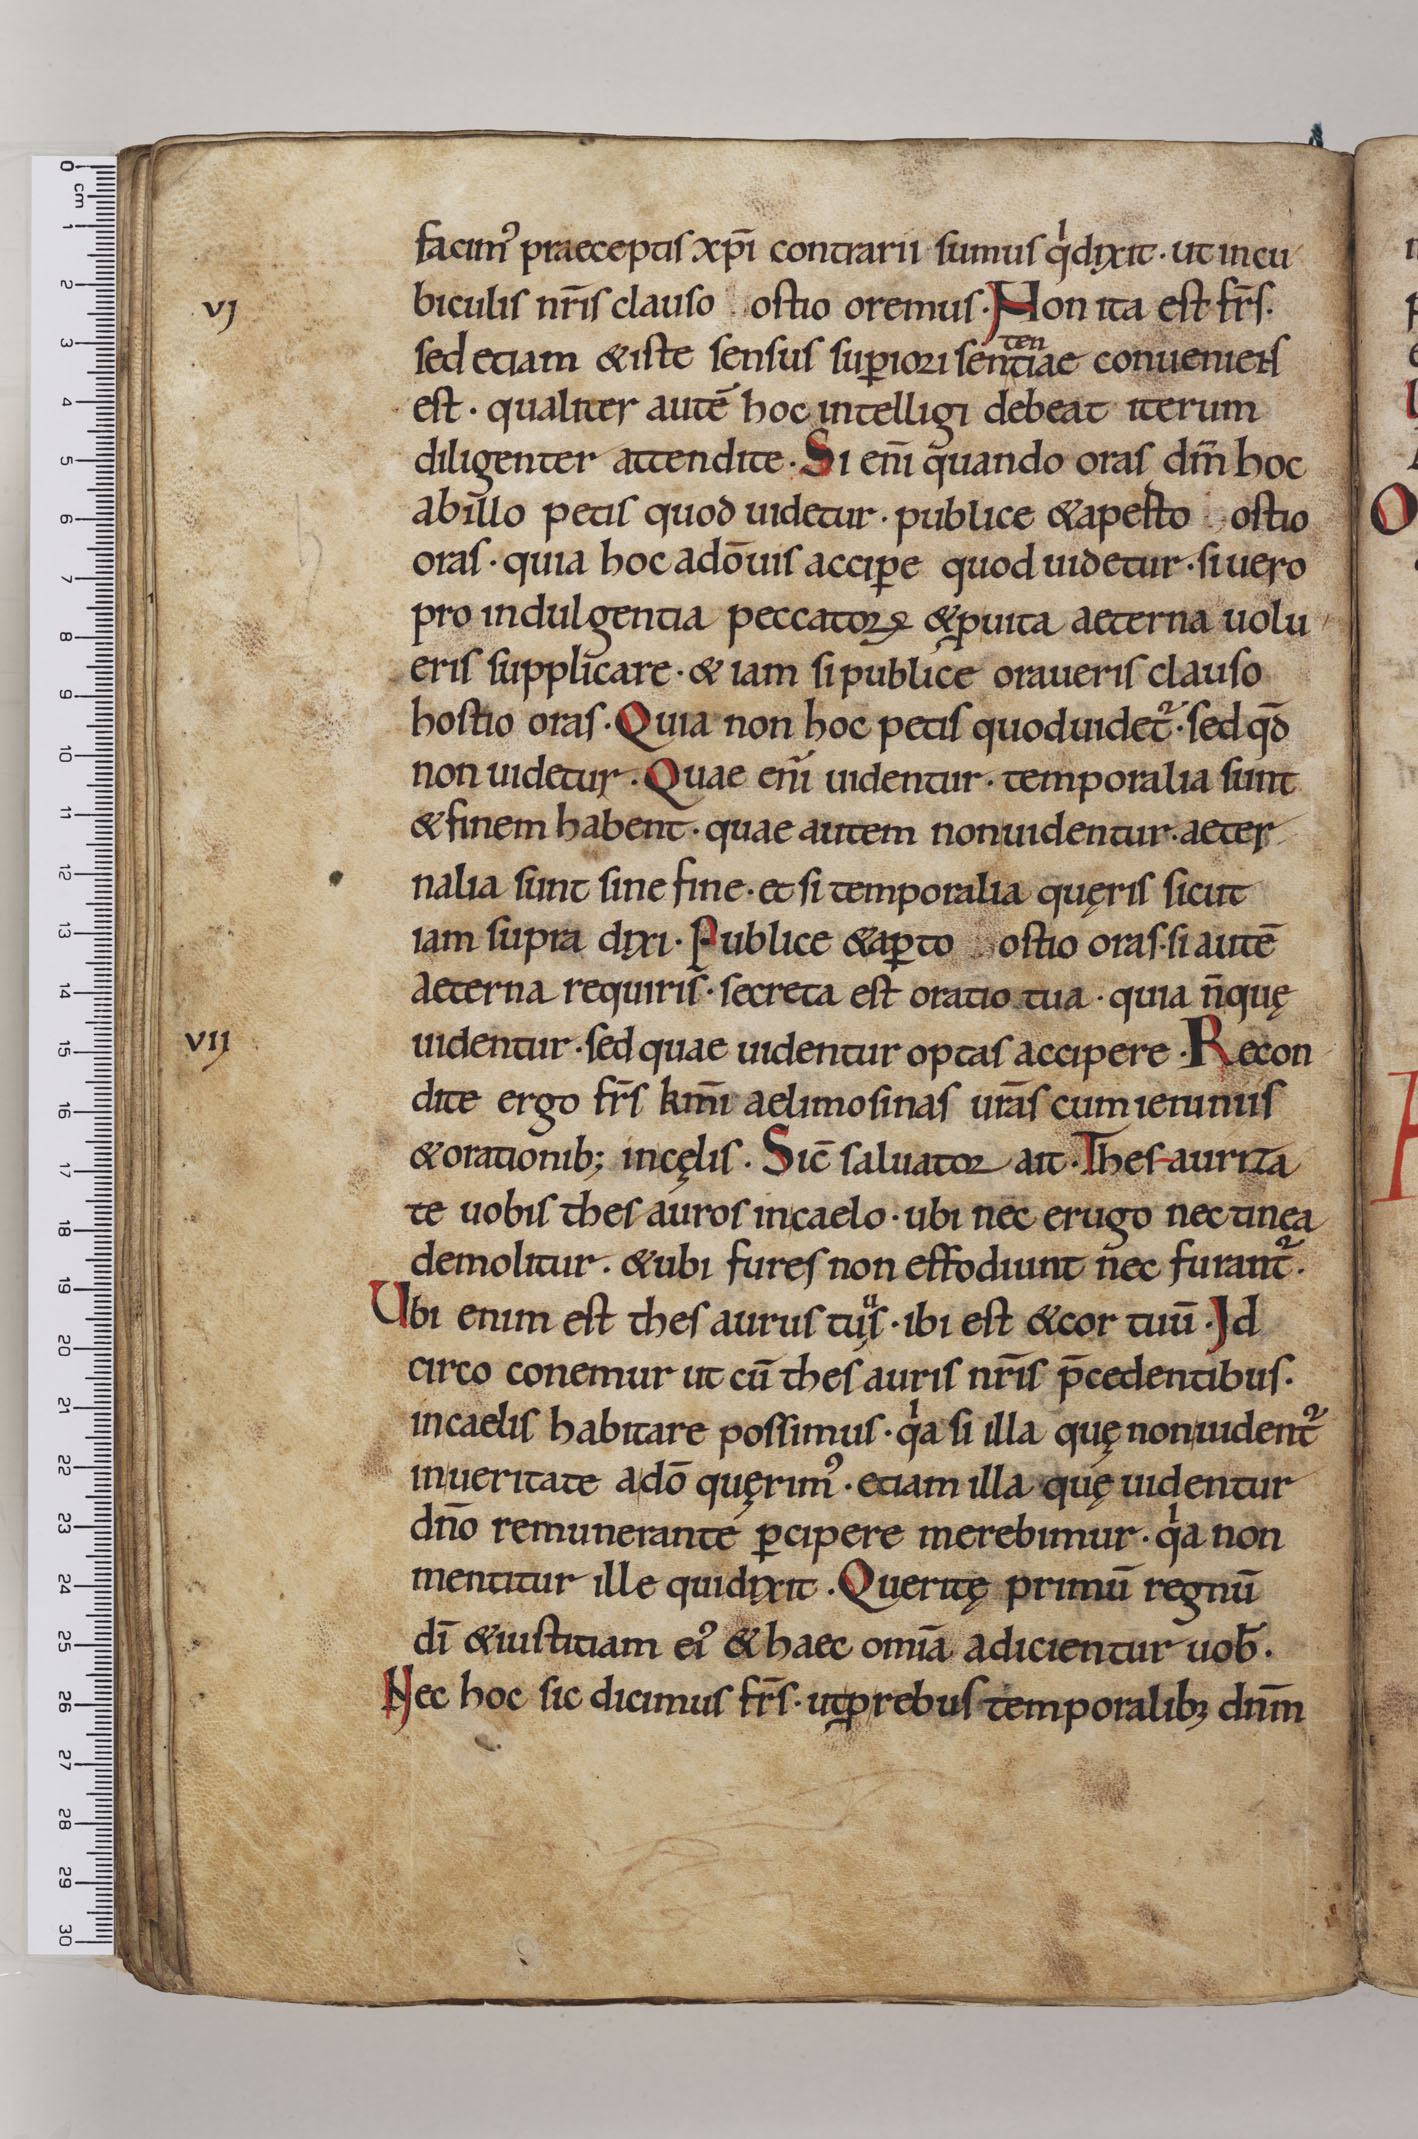 facimꝰ praeceptis xp̄i contrarii sumus qͥ dixit · ut in cu
vj
biculis nr̄is clauso ostio oremus · Non ita est fr̄s ·
sed etiam & iste sensus suꝑiori sentiae conueniens
ten
est · qualiter autē hoc intelligi debeat iterum
diligenter attendite · Si eni̅ quando oras dm̄ hoc
ab illo petis quod uidetur · publice & apesto ostio
oras · quia hoc ad ō uis acciꝑe quod uidetur · si uero
pro indulgentia peccatoꝝ & ꝓ uita aeterna uolu
eris supplicare · & iam si publice oraueris clauso
hostio oras · Quia non hoc petis quod uidet᷑ · sed qd̄
non uidetur · Quae eni̅ uidentur · temporalia sunt
& finem habent · quae autem non uidentur · aeter
nalia sunt sine fine · et si temporalia quęris sicut
iam supra dixi · Publice & aꝑto ostio oras · si autē
aeterna requiris · secreta est oratio tua · quia n̄ quę
vii
uidentur · sed quae uidentur optas accipere · Recon
dite ergo fr̄s km̄i aelimosinas ur̄as cum ieiuniis
& orationib; in cęlis · Sic̄ saluator ait · Thesauriza
te uobis thesauros in caelo · ubi nec erugo nec tinea
demolitur · & ubi fures non effodiunt nec furant᷑ ·
Ubi enim est thesaurus tuͧs · ibi est & cor tuū · Id
circo conemur ut cū thesauris nr̄is p̄cedentibus ·
in caelis habitare possimus · qͥa si illa quę non uident᷑
in ueritate a dō quęrimꝰ · etiam illa quę uidentur
dn̄o remunerante ꝑcipere merebimur · qͥa non
mentitur ille qui dixit · Queritę primū regnū
dī & iustitiam eiꝰ & haec omīa adicientur uob̄ ·
Nec hoc sic dicimus fr̄s · ut ꝓ rebus temporalibꝫ dnm̄